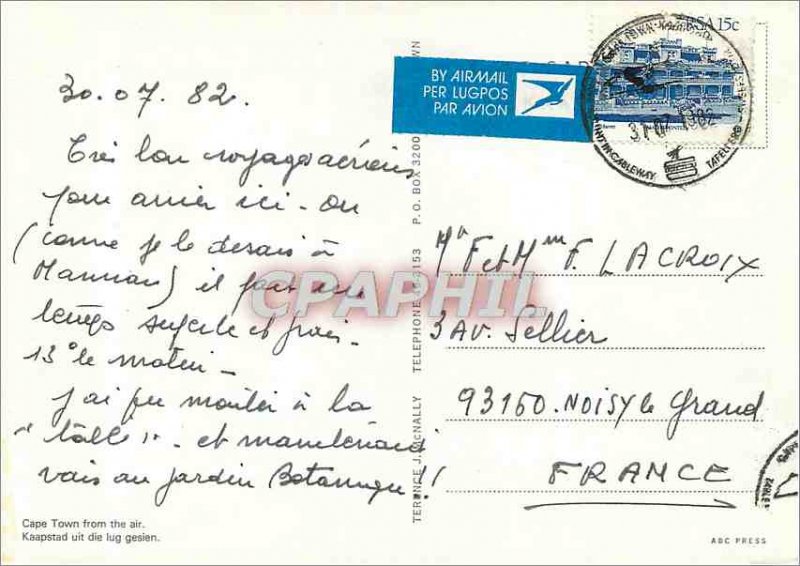 30.07.82.
Très bon voyage aérien
pour arriver ici - ou
(comme je le disais à
Maman) il fait un
temps superbe et frais -
13° le matin -
j'ai pu monter à la
"table" - et maintenant
vais au jardin Botanique!!
Cape Town from the air.
Kaapstad uit die lug gesien.
TERENCE J. McNALLY TELEPHONE 153 P.O. BOX 3200
BY AIRMAIL
PER LUGPOS
PAR AVION
RSA 15c
31 07 1982
CABLEWAY TAFELBERG
Mr F et Mme F. LACROIX
3 AV. Sellier
93160. NOISY le Grand
FRANCE
ABC PRESS
CPAPHIL